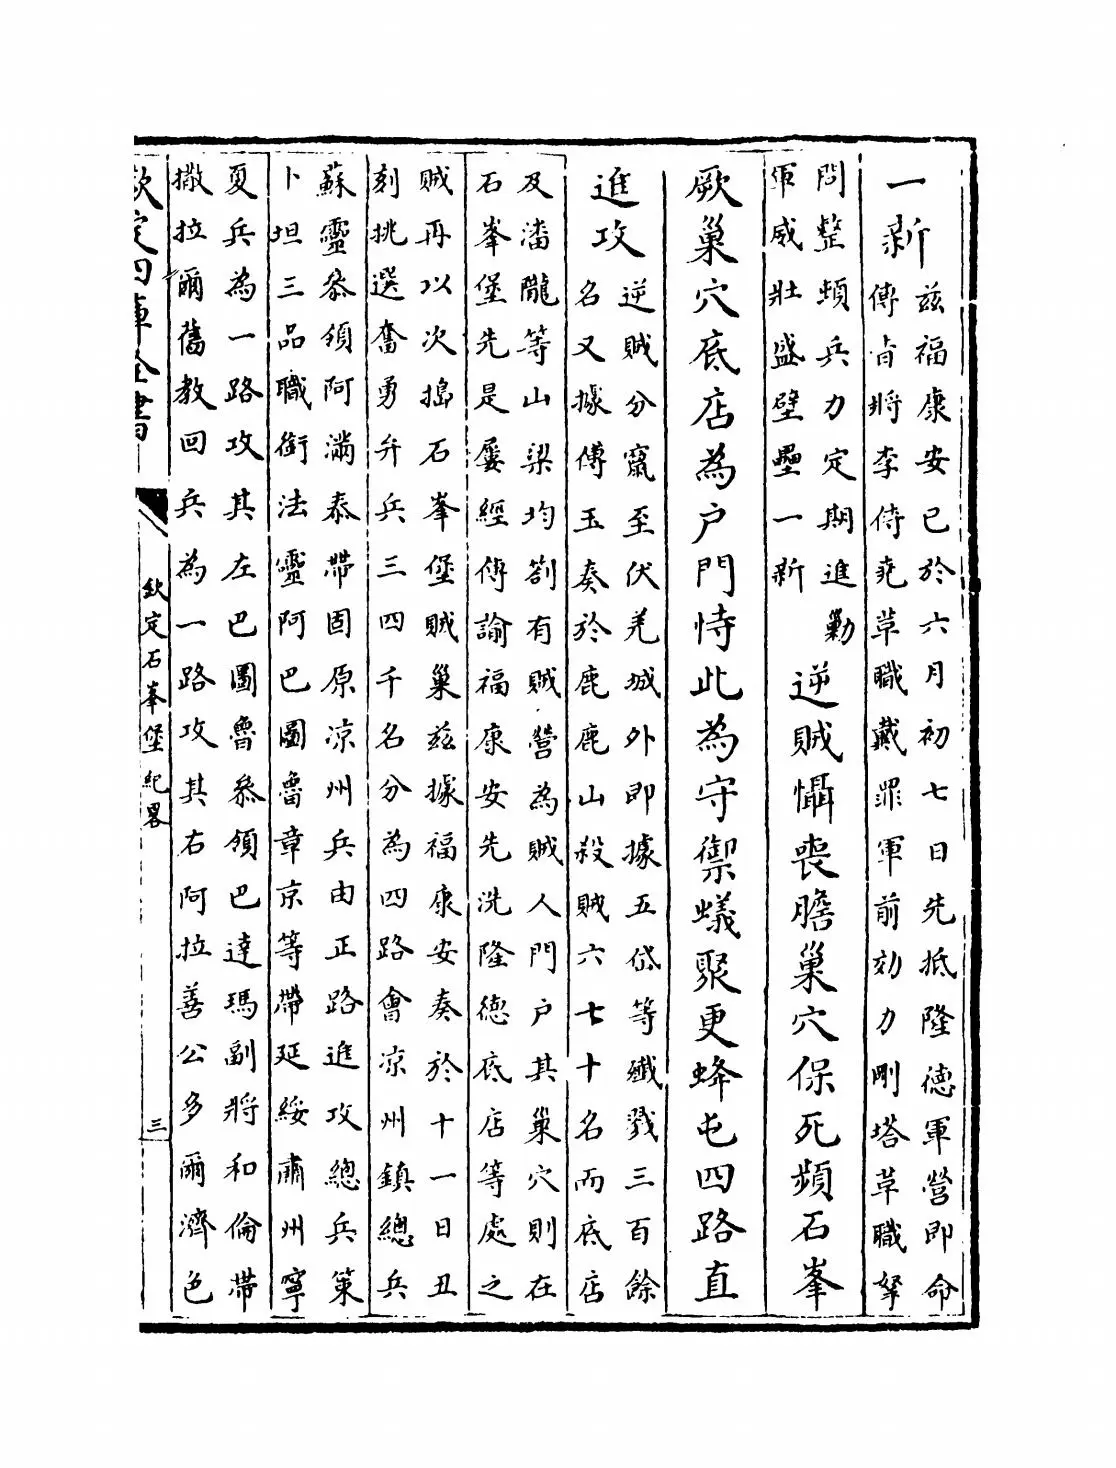 一新
兹福康安已於六月初七日先抵隆德軍營即命
傳旨將李侍堯革職戴罪軍前効力剛塔革職拏
問整頓兵力定期進勦
軍威壯盛壁壘一新
逆賊懾喪膽巢穴保死頻石峯
厥巢穴底店為户門恃此為守禦蟻聚更蜂屯四路直
進攻
逆賊分竄至伏羌城外即據五岱等殲戮三百餘
名又據傅玉奏於鹿鹿山殺賊六七十名而底店
及潘隴等山梁均劄有賊營為賊人門户其巢穴則在
石峯堡先是屢經傳諭福康安先洗隆德底店等處之
賊再以次搗石峯堡賊巢兹據福康安奏於十一日丑
刻挑選奮勇弁兵三四千名分為四路會凉州鎮總兵
蘇靈叅領阿滿泰帶固原凉州兵由正路進攻總兵策
卜坦三品職銜法靈阿巴圖魯章京等帶延綏肅州寧
夏兵為一路攻其左巴圖魯叅領巴達瑪副將和倫帶
撒拉爾舊教回兵為一路攻其右阿拉善公多爾濟色
欽定四庫全書
欽定石峯堡紀畧
三